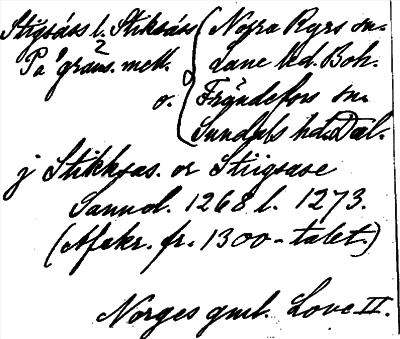 Stigsåss l. Stiksås { Nogra Ryrs sn.
På gräns. mell. Lane hd. Boh.
o. Frändefors sn.
Sundals hd. Dal.
j Stikksas. or Stiigsase
Sannol. 1268 l. 1273.
(Afskr. fr. 1300-talet.)
Norges gml. Love II.